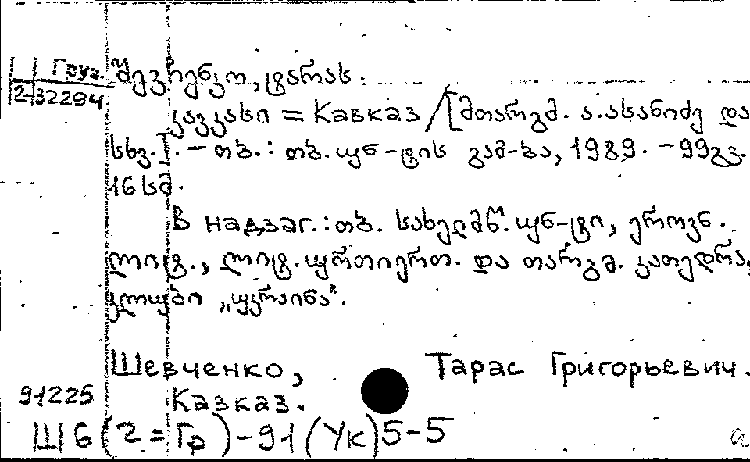 Ш Груз. შევჩენკო, ტარას.
2-32294
კავკასი = Кавказ /[მთარგმ. ა. ასანიძე და
სხვ.]. – თბ.: თბ. უნ-ტის გამ-ბა, 1989. – 99გვ.
16 სმ.
В надзаг.: თბ. სახელმწ. უნ-ტი, ეროვნ.
ლიტ., ლიტ. ურთიერთ. და თარგმ. კათედრა,
კლუბი „უკრაინა“.
Шевченко, Тарас Григорьевич.
91225 Казказ.
Ш6(2=Гр)-91(Ук)5-5